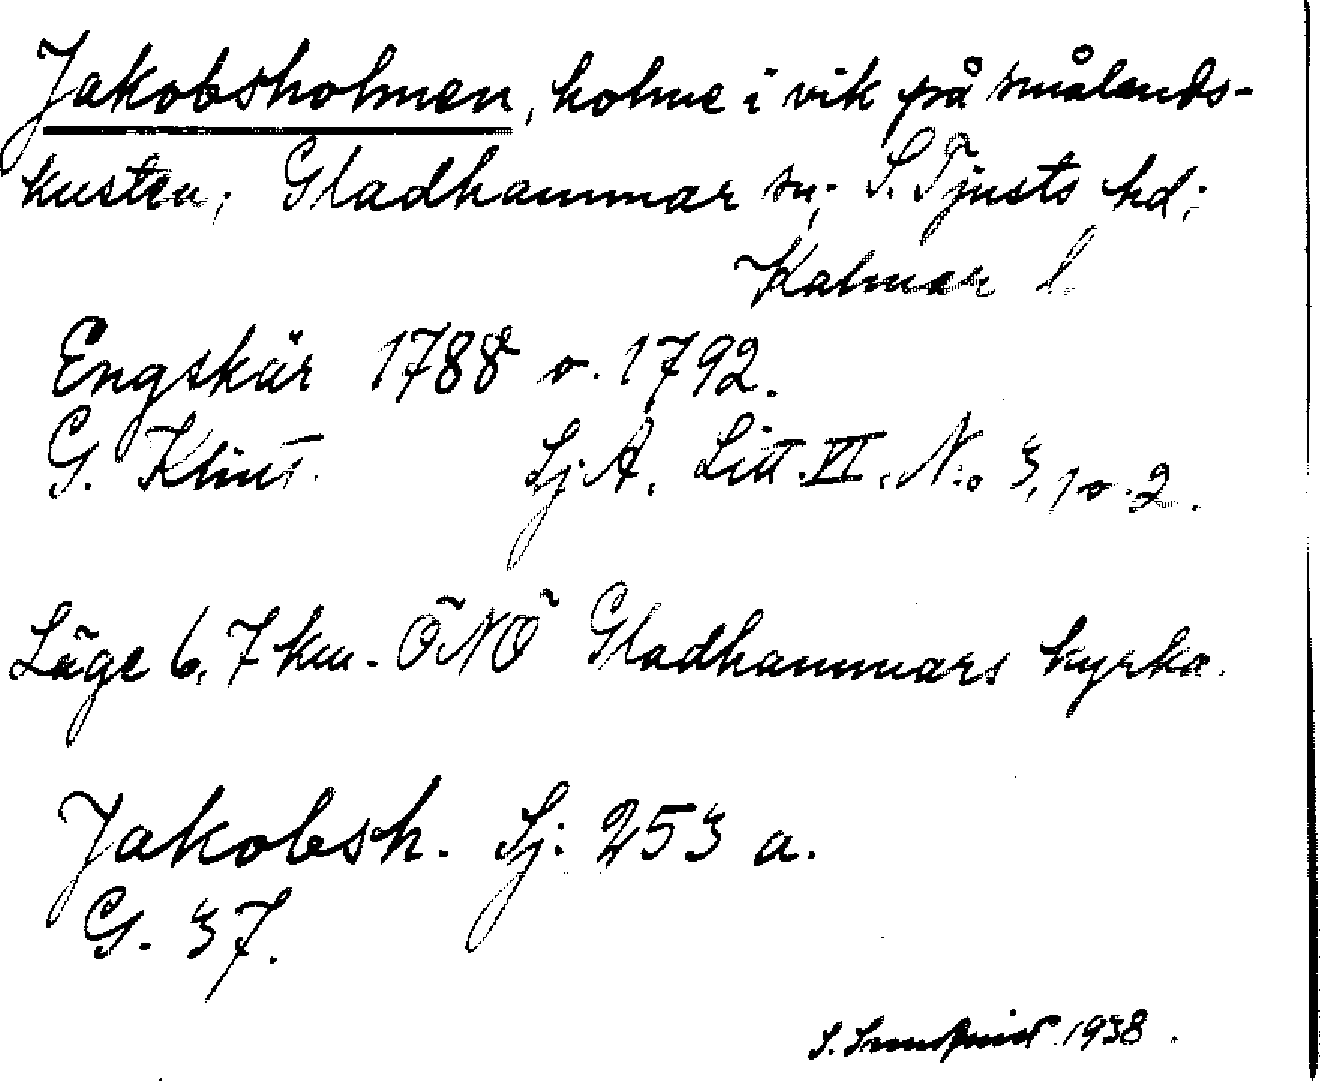 Jakobsholmen, holme i vik på smålands-
kusten, Gladhammar sn; S. Tjusts hd;
Kalmar l.
Engskär 1788 o. 1792.
G. Klint. Sj. A. Litt. VI. N:o 3, 1 o. 2.
Läge 6,7 km. ÖNÖ Gladhammars kyrka.
Jakobsh. Sj: 253 a.
G. 37.
S. Sundqvist 1938.